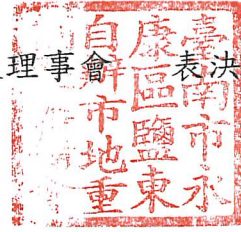 理事會 表決
臺南市永
康區鹽東
自辦市地重